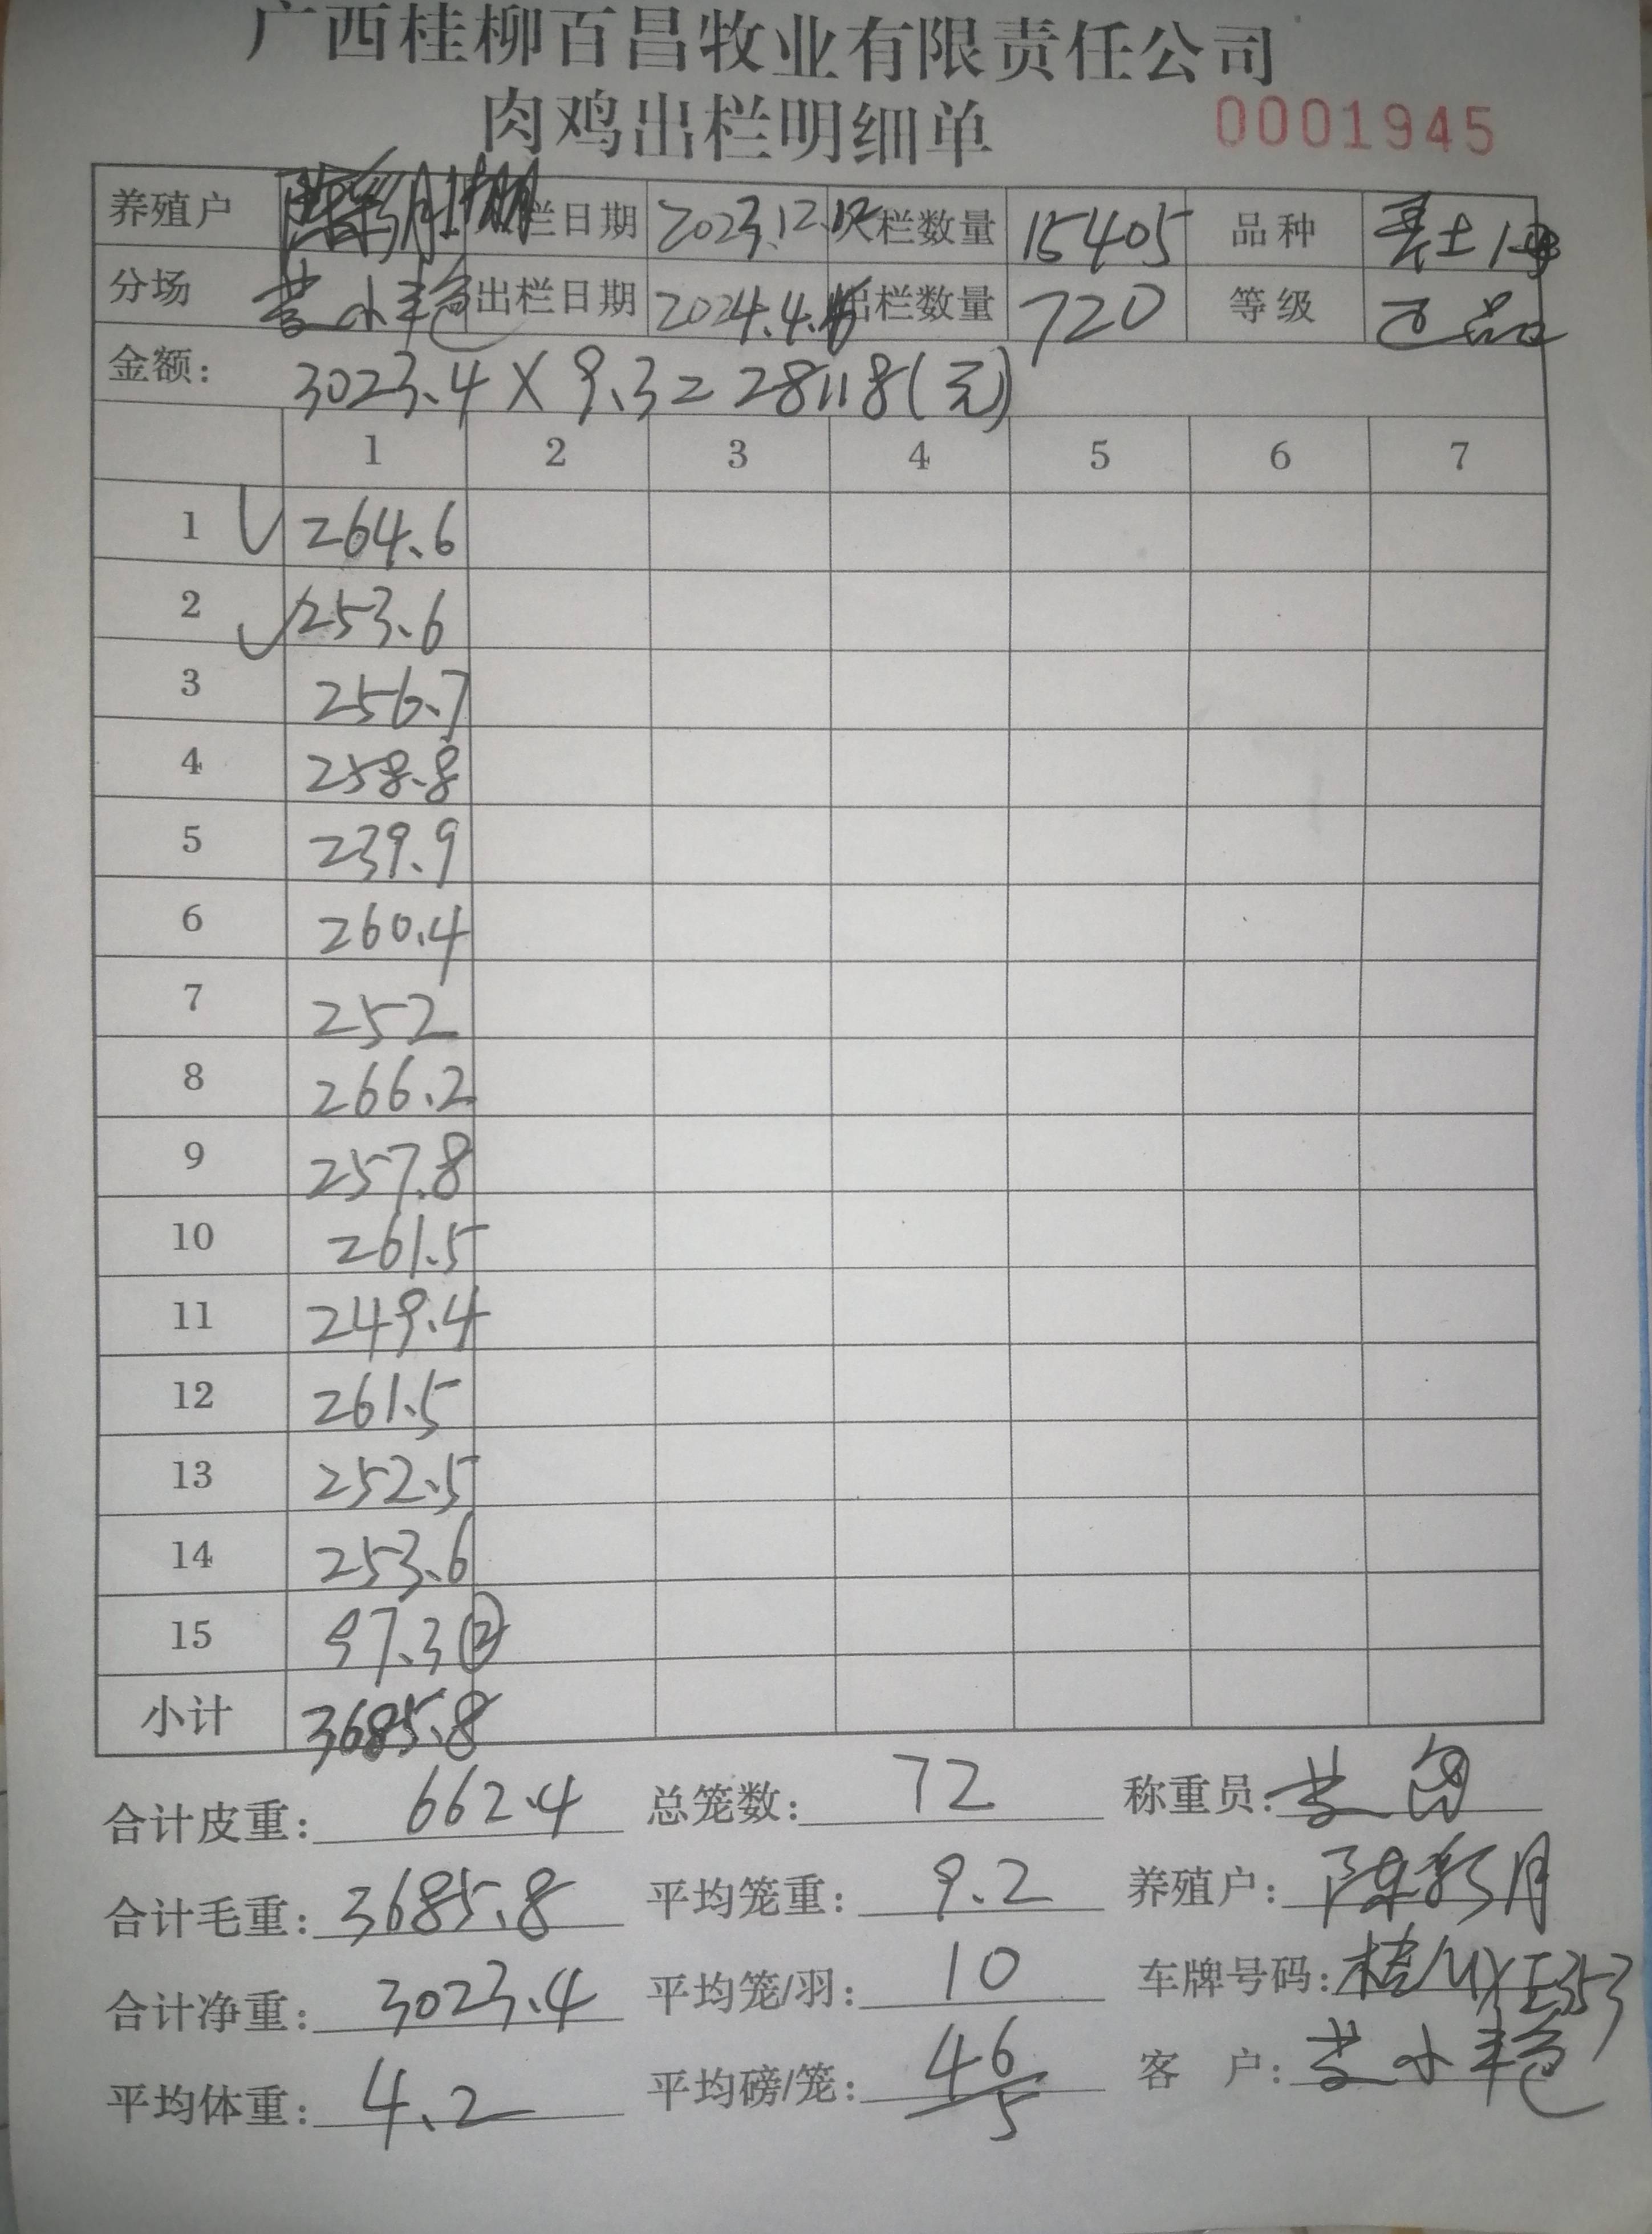 广西桂柳百昌牧业有限责任公司
肉鸡出栏明细单 0001945
养殖户 栏日期 2023.12.12 栏数量 15405 品种 土1号
分场 黄小艳 出栏日期 2024.4. 出栏数量 720 等级 品
金额: 3023.4×9.3=28118(元)
1 2 3 4 5 6 7
1 264.6
2 253.6
3 256.7
4 258.8
5 239.9
6 260.4
7 252
8 266.2
9 257.8
10 261.5
11 249.4
12 261.5
13 252.5
14 253.6
15 97.3 ②
小计 3685.8
合计皮重: 662.4 总笼数: 72 称重员: 黄
合计毛重: 3685.8 平均笼重: 9.2 养殖户: 陈彩月
合计净重: 3023.4 平均笼/羽: 10 车牌号码: 桂MXE353
平均体重: 4.2 平均磅/笼: 46/5 客 户: 黄小艳